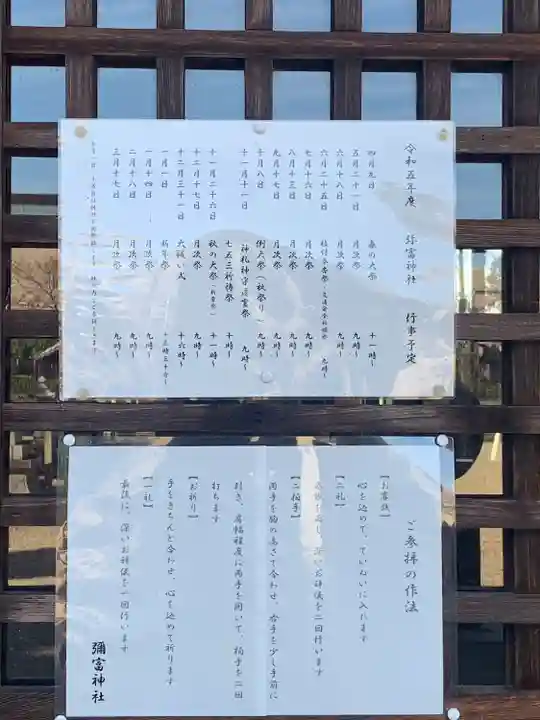 令和五年度 彌富神社 行事予定
四月九日 春の大祭 十一時〜
五月二十一日 月次祭 九時〜
六月十八日 月次祭 九時〜
六月二十五日 九時〜
七月十六日 月次祭 九時〜
八月十三日 月次祭 九時〜
九月十七日 月次祭 九時〜
十月八日 例大祭（秋祭り） 九時〜
十一月十一日 神札神守遷霊祭 九時〜
七五三祈祷祭 十時〜
十一月二十六日 秋の大祭 十一時〜
十二月十七日 月次祭 九時〜
十二月三十一日 大祓い式 十六時〜
一月一日 新年祭
一月十四日 月次祭 九時〜
二月十八日 月次祭 九時〜
三月十七日 月次祭 九時〜
ご参拝の作法
【お賽銭】
心を込めて、ていねいに入れます
【二礼】
深いお辞儀を二回行います
【二拍手】
両手を胸の高さで合わせ、右手を少し手前に
引き、肩幅程度に両手を開いて、拍手を二回
打ちます
【お祈り】
手をきちんと合わせ、心を込めて祈ります
【一礼】
最後に、深いお辞儀を一回行います
彌富神社